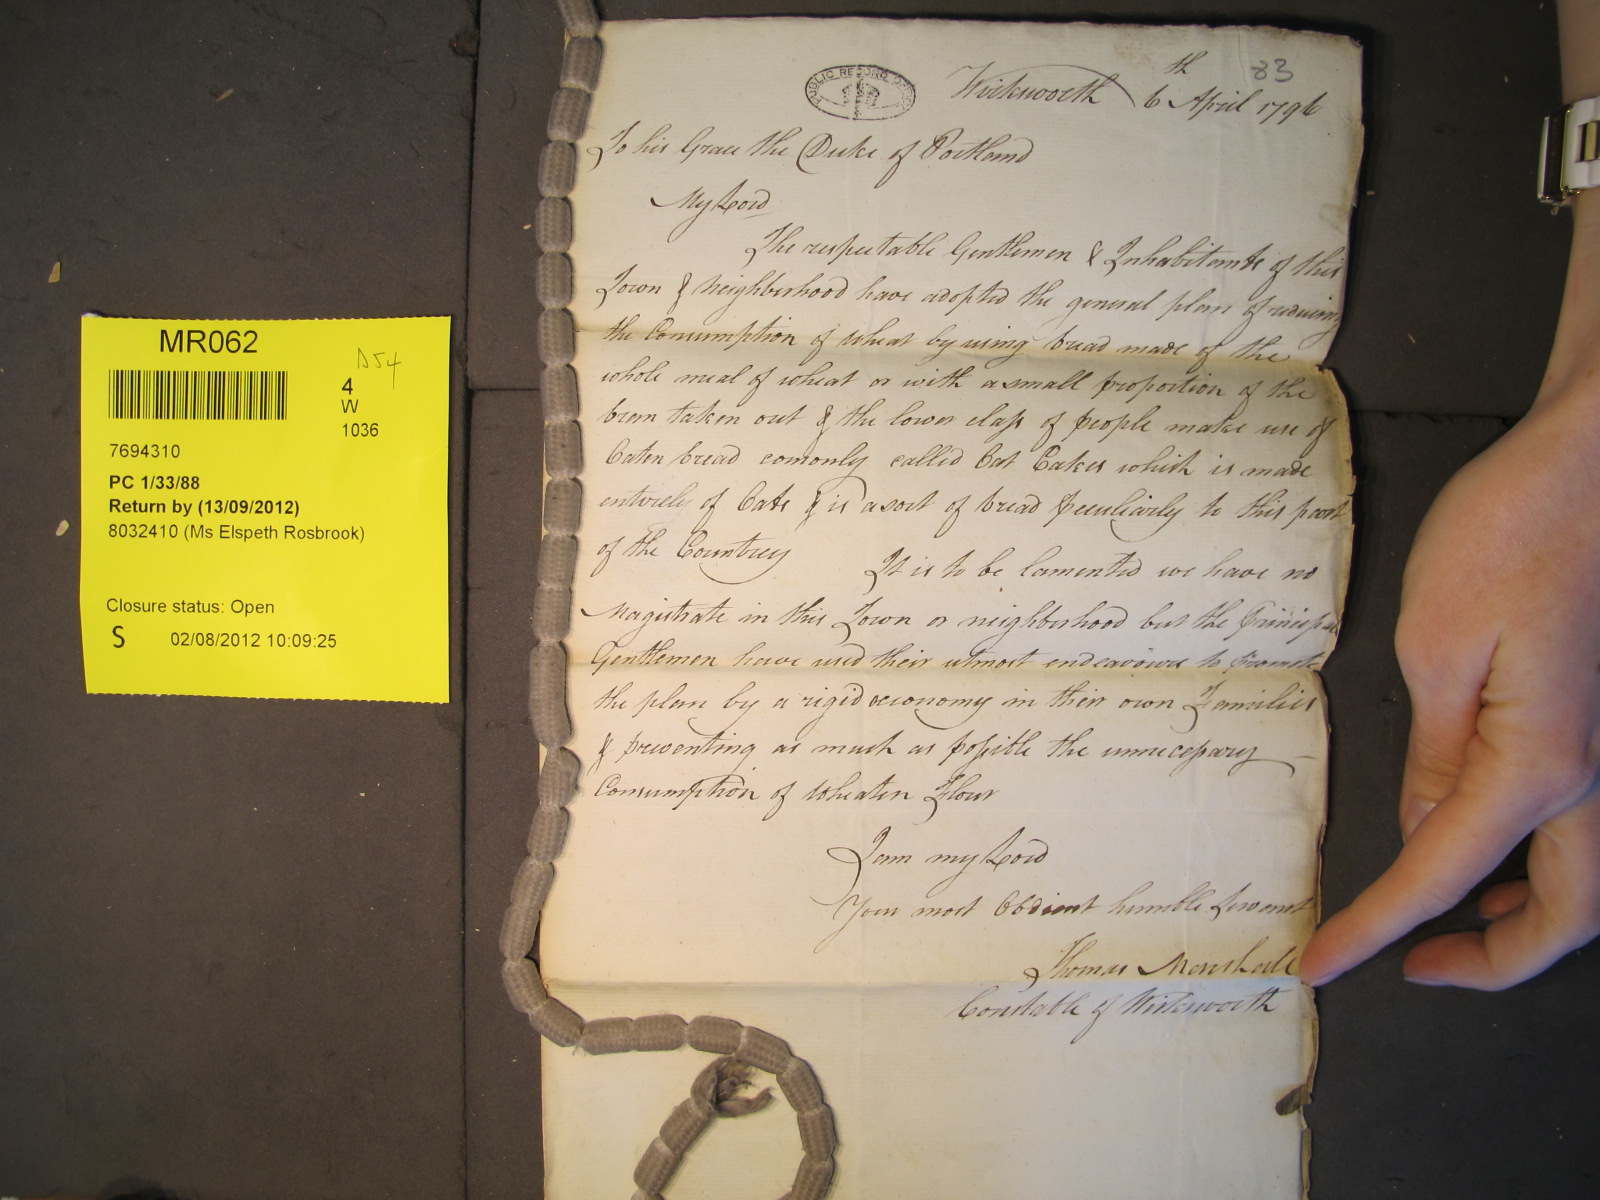 MR062
D54
4
W
1036
7694310
PC 1/33/88
Return by (13/09/2012)
8032410 (Ms Elspeth Rosbrook)
Closure status: Open
S 02/08/2012 10:09:25
PUBLIC RECORD OFFICE
83
Wirksworth 6th April 1796
To his Grace the Duke of Portland
My Lord
The respectable Gentlemen & Inhabitants of this
Town & neighborhood have adopted the general plan of reducing
the Consumption of wheat by using bread made of the
whole meal of wheat or with a small proportion of the
bran taken out & the lower class of people make use of
Oaten bread comonly called Oat Cakes which is made
entirely of Oats & is a sort of bread peculiarly to this part
of the Country It is to be lamented we have no
Magistrate in this Town or neighborhood but the Principal
Gentlemen have used their utmost endeavours to promote
the plan by a rigid œconomy in their own Families
& preventing as much as possible the unnecessary
Consumption of Wheaten Flour
I am my Lord
Your most Obdient humble Servant
Thomas Marshall
Constable of Wirksworth